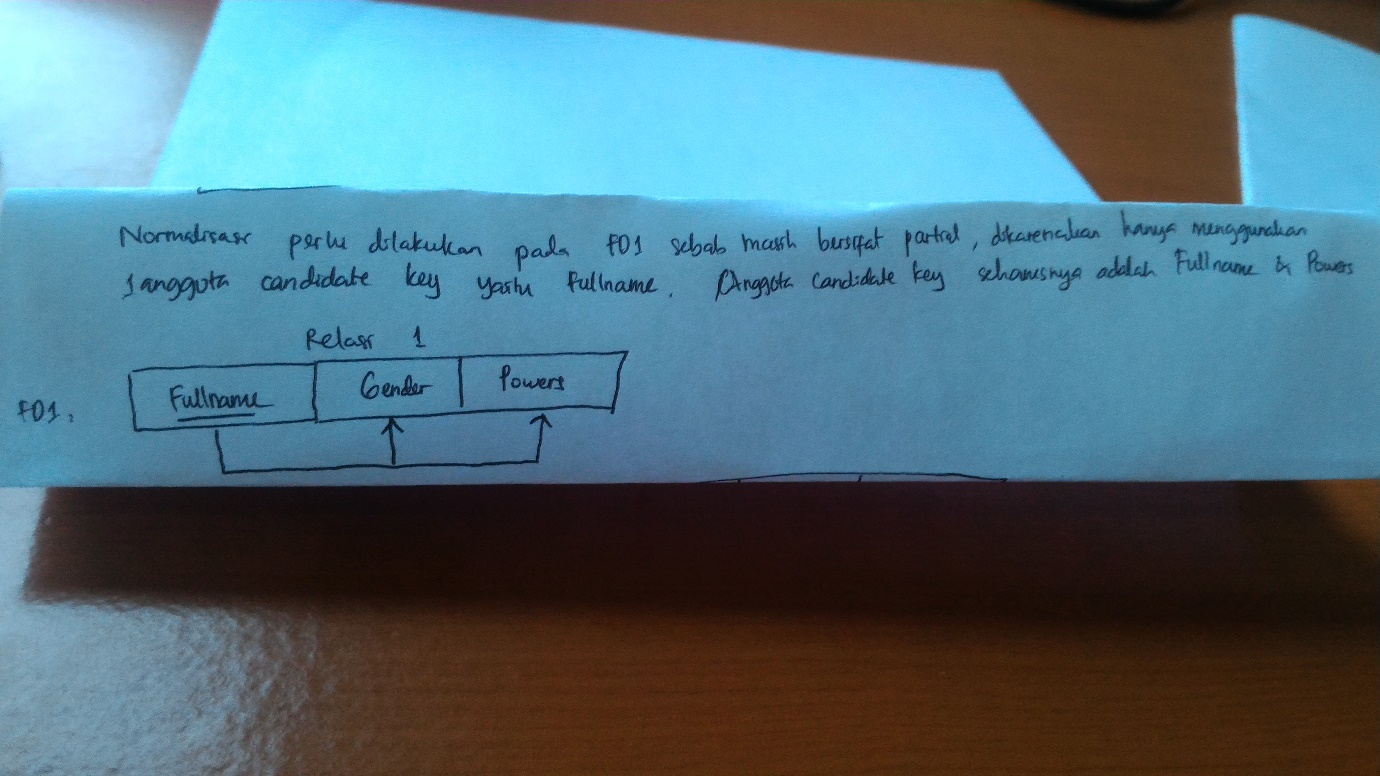 Normalisasi perlu dilakukan pada FD1 sebab masih bersifat partial, dikarenakan hanya menggunakan
1 anggota candidate key yaitu Fullname. Anggota candidate key seharusnya adalah Fullname & Powers
Relasi 1
Fullname Gender Powers
FD1.